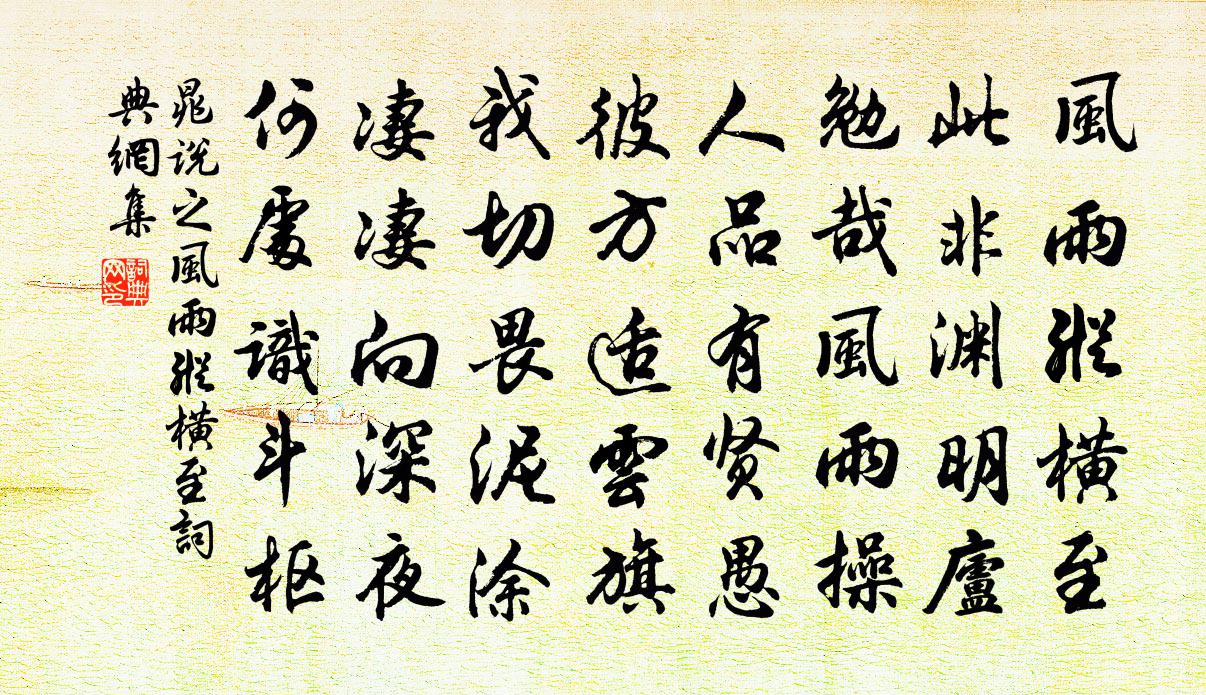 風雨縱橫至
此非渊明廬
勉哉風雨操
人品有贤愚
彼方适雲旗
我切畏泥涂
凄凄向深夜
何處識斗枢
晁说之風雨縱橫至詞
典網集
詞典
网印